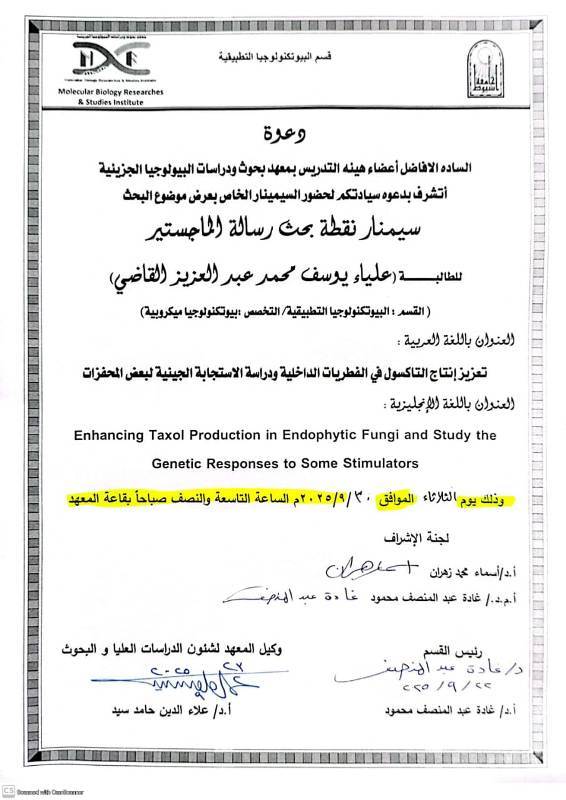 قسم البيوتكنولوجيا التطبيقية
Molecular Biology Researches & Studies Institute
Molecular Biology Researches
& Studies Institute
جامعة أسيوط
دعوة
الساده الافاضل أعضاء هيئه التدريس بمعهد بحوث ودراسات البيولوجيا الجزيئية
أتشرف بدعوه سيادتكم لحضور السيمينار الخاص بعرض موضوع البحث
سيمنار نقطة بحث رسالة الماجستير
للطالبـــــــة (علياء يوسف محمد عبد العزيز القاضي)
( القسم : البيوتكنولوجيا التطبيقية/ التخصص :بيوتكنولوجيا ميكروبية)
العنوان باللغة العربية :
تعزيز إنتاج التاكسول في الفطريات الداخلية ودراسة الاستجابة الجينية لبعض المحفزات
العنوان باللغة الإنجليزية :
Enhancing Taxol Production in Endophytic Fungi and Study the
Genetic Responses to Some Stimulators
وذلك يوم الثلاثاء الموافق ٢٠٢٥/٩/٣٠م الساعة التاسعة والنصف صباحاً بقاعة المعهد
لجنة الإشراف
أ.د/أسماء محمد زهران
أ.م.د/ غادة عبد المنصف محمود غادة عبد المنصف
رئيس القسم
د/ غادة عبد المنصف
٢٠٢٥/٩/٢٢
أ.د/ غادة عبد المنصف محمود
وكيل المعهد لشئون الدراسات العليا و البحوث
أ.د/ علاء الدين حامد سيد
CS Scanned with CamScanner